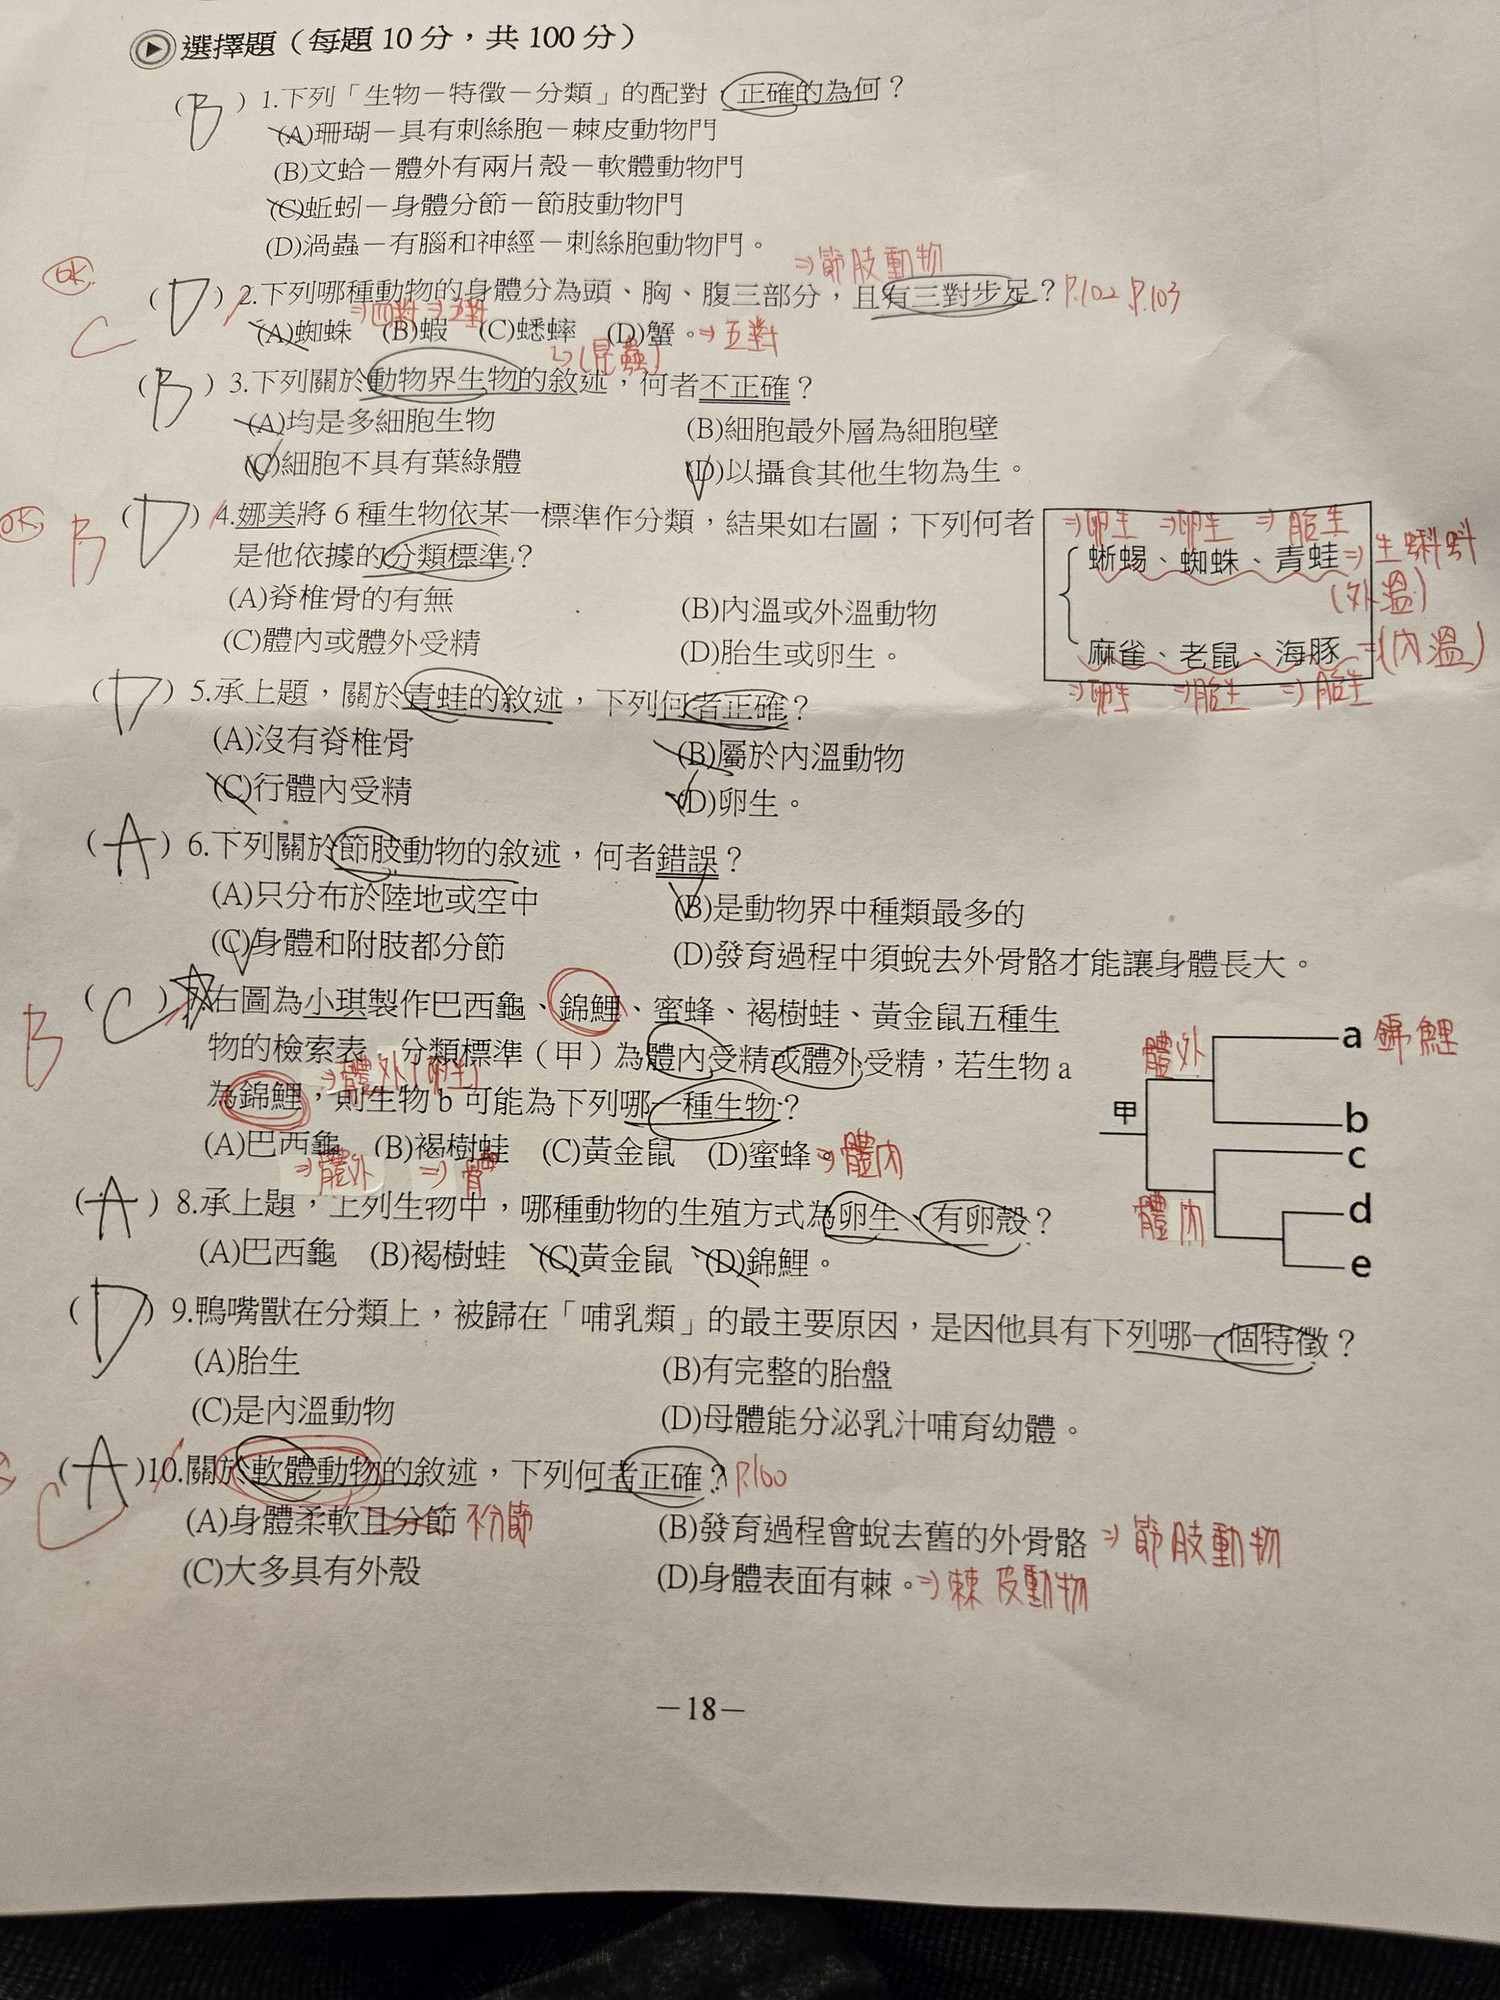 選擇題（每題 10 分，共 100 分）
（B）1.下列「生物－特徵－分類」的配對，正確的為何？
(A)珊瑚－具有刺絲胞－棘皮動物門
(B)文蛤－體外有兩片殼－軟體動物門
(C)蚯蚓－身體分節－節肢動物門
(D)渦蟲－有腦和神經－刺絲胞動物門。
⇒節肢動物
OK
（D）2.下列哪種動物的身體分為頭、胸、腹三部分，且有三對步足？P.102 P.103
⇒四對 ⇒五對
C
(A)蜘蛛 (B)蝦 (C)蟋蟀 (D)蟹。⇒五對
(昆蟲)
（B）3.下列關於動物界生物的敘述，何者不正確？
(A)均是多細胞生物 (B)細胞最外層為細胞壁
(C)細胞不具有葉綠體 (D)以攝食其他生物為生。
OK B
（D）4.娜美將 6 種生物依某一標準作分類，結果如右圖；下列何者
是他依據的分類標準？
(A)脊椎骨的有無 (B)內溫或外溫動物
(C)體內或體外受精 (D)胎生或卵生。
⇒卵生 ⇒卵生 ⇒胎生
蜥蜴、蜘蛛、青蛙⇒生蝌蚪
(外溫)
麻雀、老鼠、海豚⇒(內溫)
⇒卵生 ⇒胎生 ⇒胎生
（D）5.承上題，關於青蛙的敘述，下列何者正確？
(A)沒有脊椎骨 (B)屬於內溫動物
(C)行體內受精 (D)卵生。
（A）6.下列關於節肢動物的敘述，何者錯誤？
(A)只分布於陸地或空中 (B)是動物界中種類最多的
(C)身體和附肢都分節 (D)發育過程中須蛻去外骨骼才能讓身體長大。
B
（C）7.右圖為小琪製作巴西龜、錦鯉、蜜蜂、褐樹蛙、黃金鼠五種生
物的檢索表 分類標準（甲）為體內受精或體外受精，若生物 a
⇒體外(卵生)
為錦鯉，則生物 b 可能為下列哪一種生物？
(A)巴西龜 (B)褐樹蛙 (C)黃金鼠 (D)蜜蜂。⇒體內
⇒體外 ⇒
體外 a 錦鯉
甲
b
c
體內 d
e
（A）8.承上題，上列生物中，哪種動物的生殖方式為卵生、有卵殼？
(A)巴西龜 (B)褐樹蛙 (C)黃金鼠 (D)錦鯉。
（D）9.鴨嘴獸在分類上，被歸在「哺乳類」的最主要原因，是因他具有下列哪一個特徵？
(A)胎生 (B)有完整的胎盤
(C)是內溫動物 (D)母體能分泌乳汁哺育幼體。
（A）10.關於軟體動物的敘述，下列何者正確？P.100
C
(A)身體柔軟且分節 不分節 (B)發育過程會蛻去舊的外骨骼⇒節肢動物
(C)大多具有外殼 (D)身體表面有棘。⇒棘皮動物
－18－